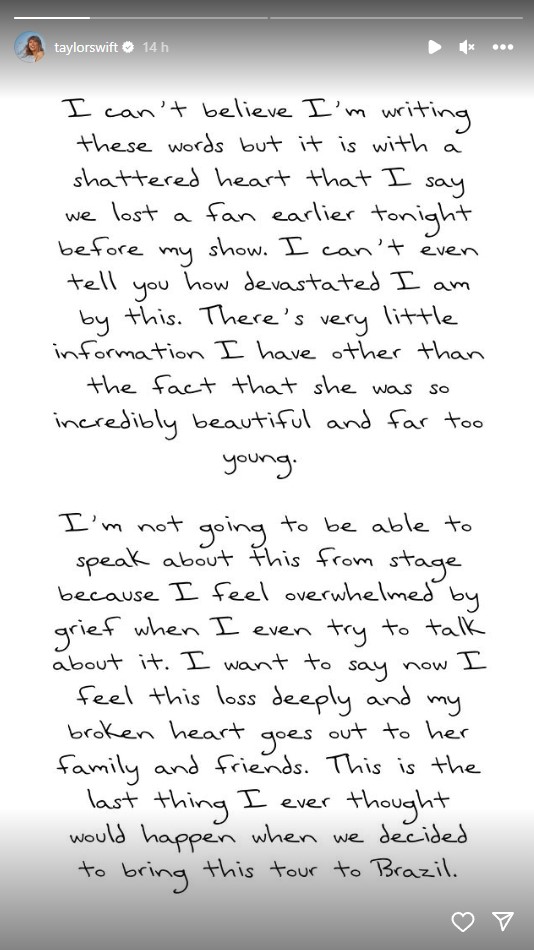 taylorswift 14 h
I can't believe I'm writing
these words but it is with a
shattered heart that I say
we lost a fan earlier tonight
before my show. I can't even
tell you how devastated I am
by this. There's very little
information I have other than
the fact that she was so
incredibly beautiful and far too
young.
I'm not going to be able to
speak about this from stage
because I feel overwhelmed by
grief when I even try to talk
about it. I want to say now I
feel this loss deeply and my
broken heart goes out to her
family and friends. This is the
last thing I ever thought
would happen when we decided
to bring this tour to Brazil.